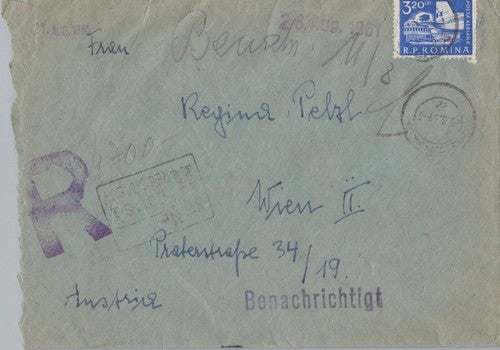 AUG. 1961
2/8. AUG. 1961
3.20 LEI
POSTA AERIANA
R.P.ROMINA
Frau
Regina Pelzl
R
1700-
Wien II.
Praterstraße 34/19.
Austria
Benachrichtigt